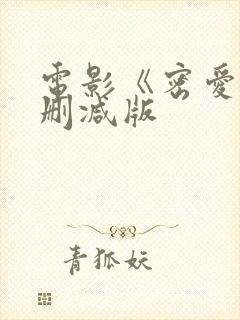 電影《密愛
刪減版
青狐妖